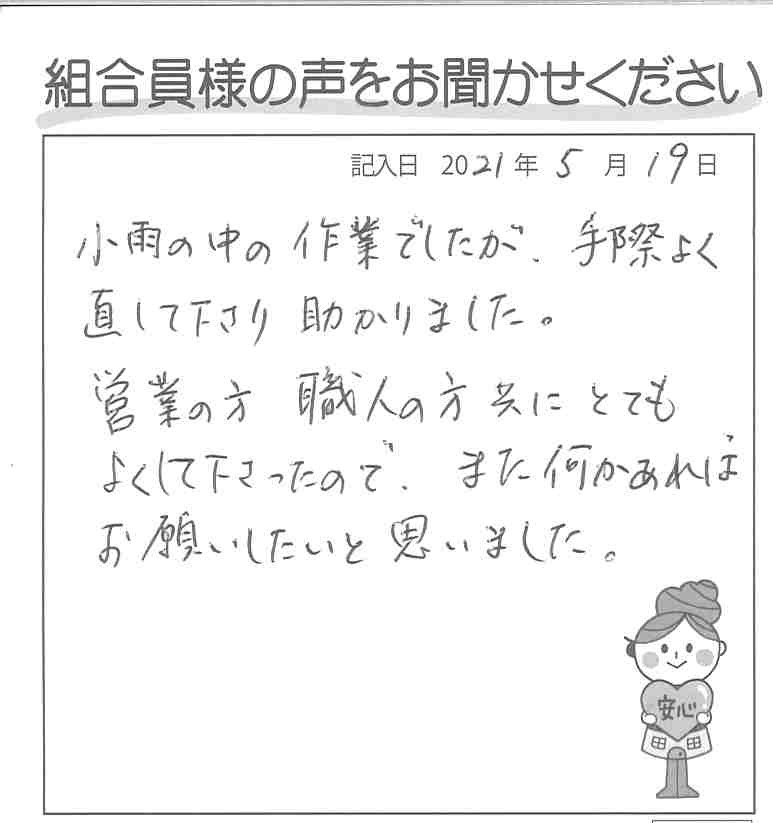 組合員様の声をお聞かせください
記入日 2021年 5月 19日
小雨の中の作業でしたが、手際よく
直して下さり 助かりました。
営業の方 職人の方 共に とても
よくして下さったので、また何かあれば
お願いしたいと思いました。
安心